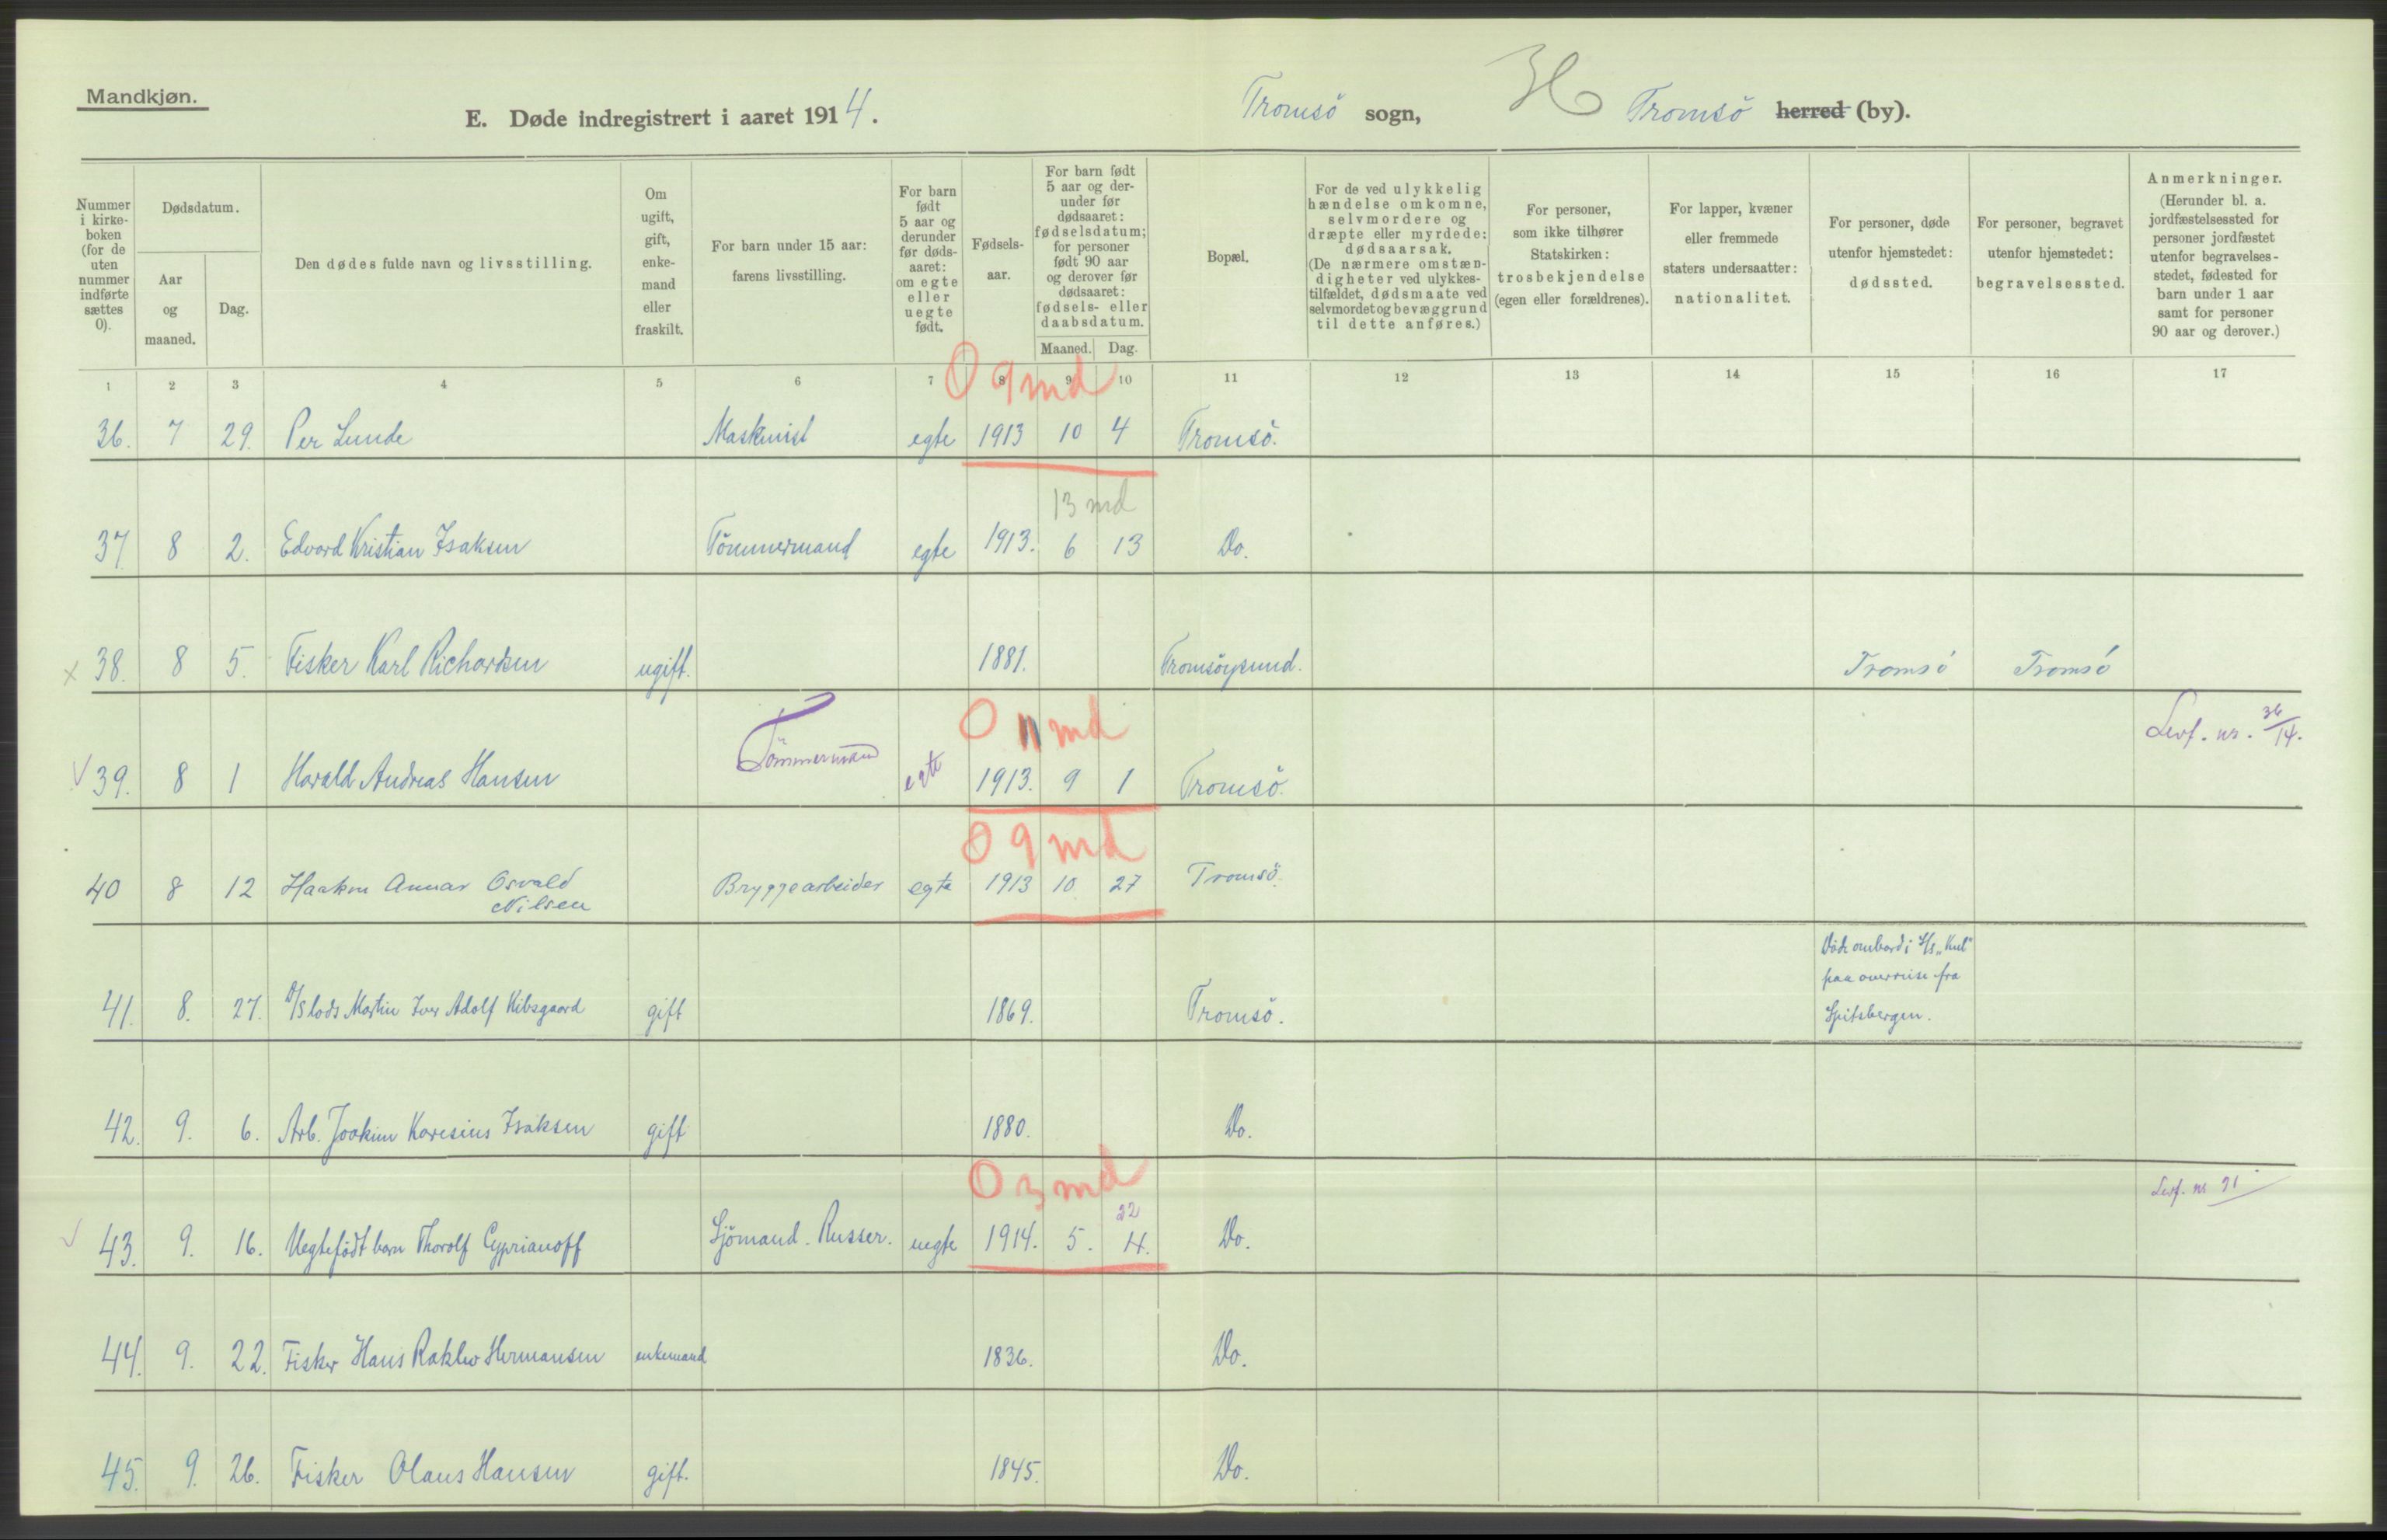 Mandkjøn.
E. Døde indregistrert i aaret 1914.
Tromsö sogn,
Tromsö herred (by).
Nummer i kirke- boken (for de uten nummer indførte sættes 0).
Dødsdatum.
Aar og maaned.
Dag.
Den dødes fulde navn og livsstilling.
Om ugift, gift, enke- mand eller fraskilt.
For barn under 15 aar: farens livsstilling.
For barn født 5 aar og derunder før døds- aaret: om egte eller uegte født.
Fødsels- aar.
For barn født 5 aar og der- under før dødsaaret: fødselsdatum; for personer født 90 aar og derover før dødsaaret: fødsels- eller daabsdatum.
Maaned. Dag.
Bopæl.
For de ved ulykkelig hændelse omkomne, selvmordere og dræpte eller myrdede: dødsaarsak. (De nærmere omstæn- digheter ved ulykkes- tilfældet, dødsmaate ved selvmordet og bevæggrund til dette anføres.)
For personer, som ikke tilhører Statskirken: trosbekjendelse (egen eller forældrenes).
For lapper, kvæner eller fremmede staters undersaatter: nationalitet.
For personer, døde utenfor hjemstedet: dødssted.
For personer, begravet utenfor hjemstedet: begravelsessted.
Anmerkninger. (Herunder bl. a. jordfæstelsessted for personer jordfæstet utenfor begravelses- stedet, fødested for barn under 1 aar samt for personer 90 aar og derover.)
1 2 3 4 5 6 7 8 9 10 11 12 13 14 15 16 17
0 9 md
36. 7 29. Per Lunde Maskinist egte 1913 10 4 Tromsö.
13 md
37. 8 2. Edvard Kristian Isaksen Tömmermand egte 1913. 6 13 Do.
x 38. 8 5. Fisker Karl Richardsen ugift. 1881. Tromsöysund. Tromsö Tromsö
0 11 md
Levf. nr. 36/14.
39. 8 1 Harald Andreas Hansen Tömmermand egte 1913. 9 1 Tromsö.
0 9 md
40 8 12 Haakon Annar Osvald Nilsen Bryggearbeider egte 1913 10 27 Tromsö.
41. 8. 27. Martin Iver Adolf Kibsgaard gift 1869. Tromsö.
paa overreise fra
Spitsbergen.
42. 9. 6. Arb. Joakim Karesius Isaksen gift 1880. Do.
0 3 md
Levf. nr 91
22
43. 9. 16. Uegtefödt barn Thorolf Cyprianoff Sjömand. Russer. uegte 1914. 5. 4. Do.
44. 9. 22. Fisker Hans Hermansen enkemand 1836. Do.
45. 9. 26. Fisker Olaus Hansen gift. 1845. Do.